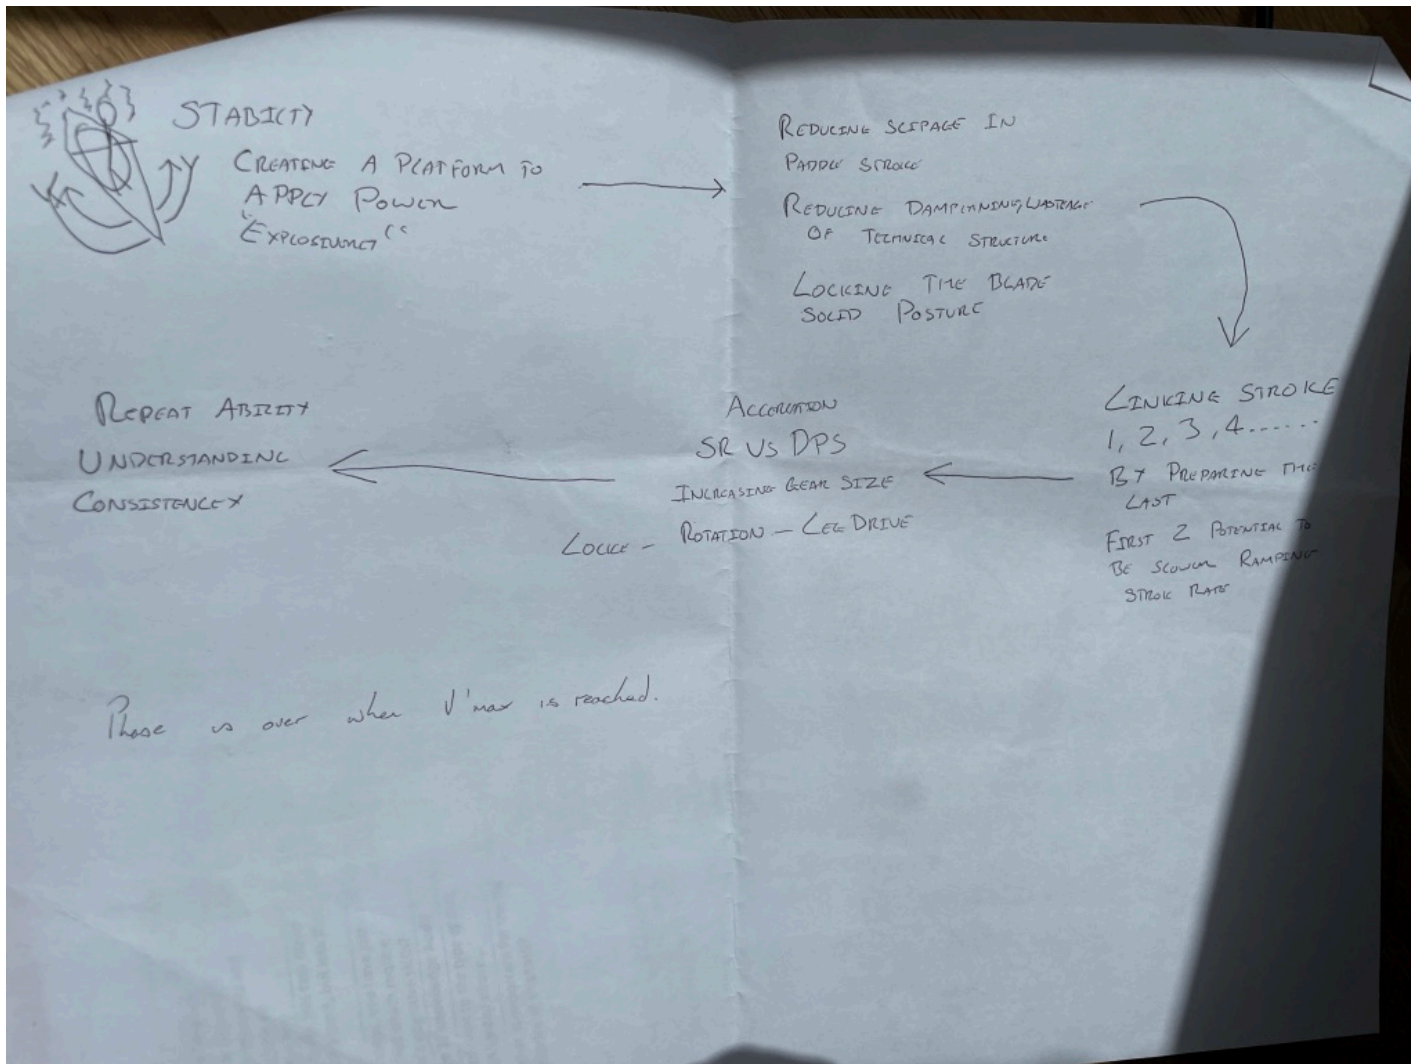 STABILITY
CREATING A PLATFORM TO
APPLY POWER
"EXPLOSIVNET"
REDUCING SLIPAGE IN
PADDLE STROKE
REDUCING DAMPENNING, WASTEAGE
OF TECHNICAL STRUCTURE
LOCKING THE BLADE
SOLID POSTURE
LINKING STROKE
1, 2, 3, 4......
BY PREPARING THE
LAST
FIRST 2 POTENTIAL TO
BE SLOWER RAMPING
STROK RATE
ACCERERATION
SR VS DPS
INCREASING GEAR SIZE
LOCK - ROTATION - LEG DRIVE
REPEAT ABILITY
UNDERSTANDING
CONSISTENCEY
Phase is over when V'max is reached.